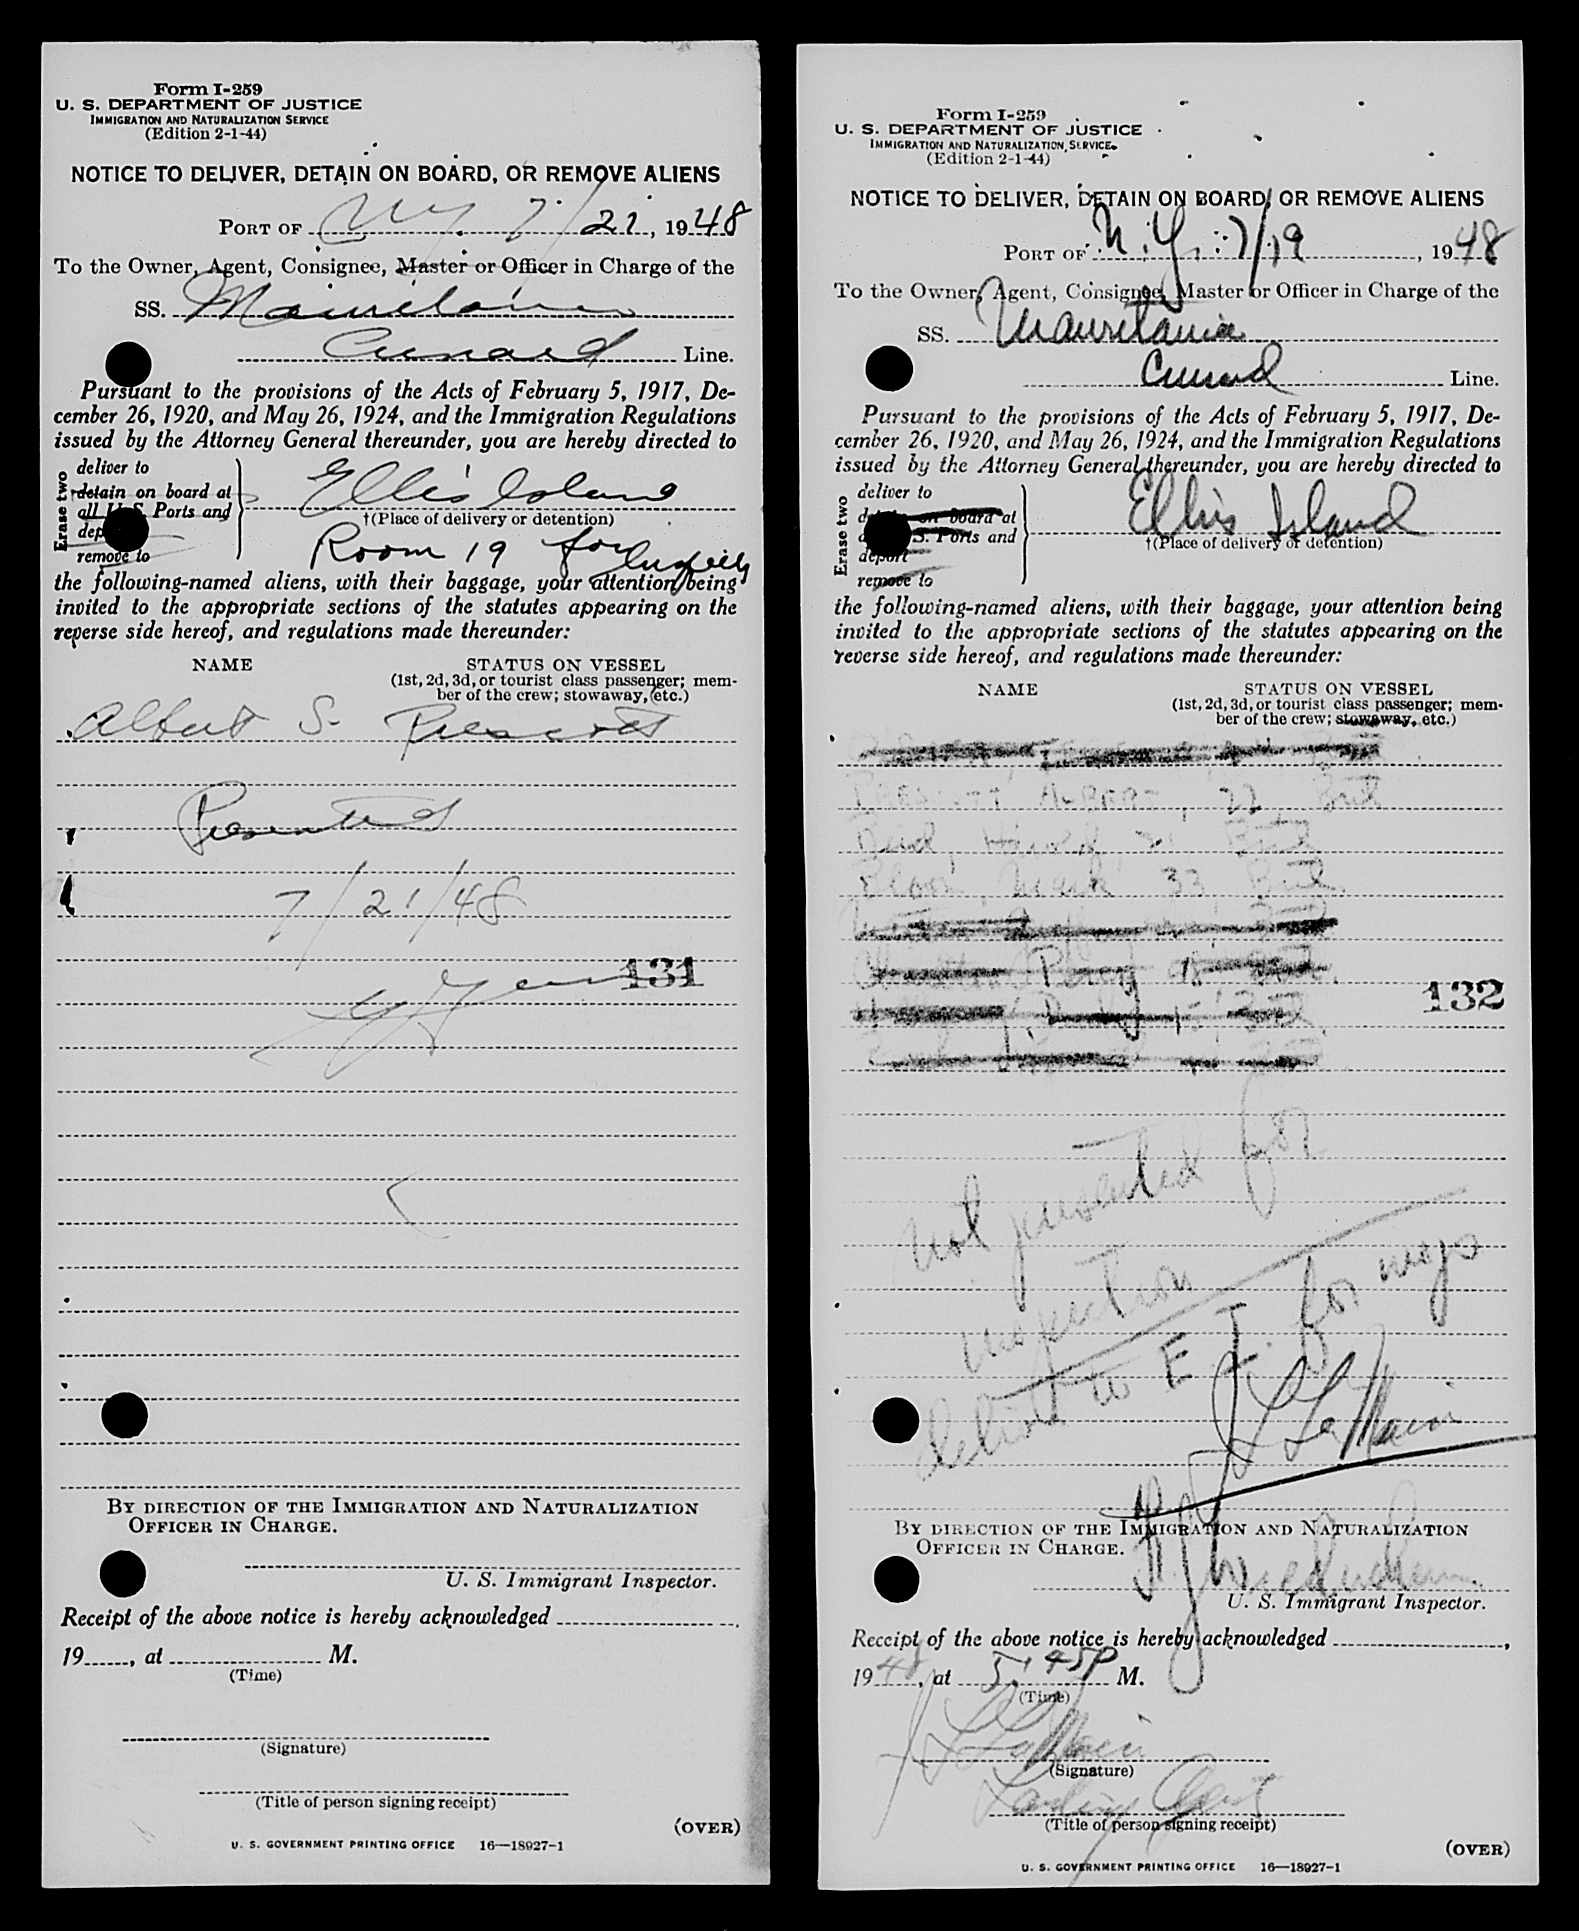 Form I-259
U. S. DEPARTMENT OF JUSTICE
IMMIGRATION AND NATURALIZATION SERVICE
(Edition 2-1-44)
NOTICE TO DELIVER, DETAIN ON BOARD, OR REMOVE ALIENS
PORT OF NY. 7/21, 1948
To the Owner, Agent, Consignee, Master or Officer in Charge of the
SS. Mauretania
Cunard Line.
Pursuant to the provisions of the Acts of February 5, 1917, De-
cember 26, 1920, and May 26, 1924, and the Immigration Regulations
issued by the Attorney General thereunder, you are hereby directed to
Erase two
deliver to
†detain on board at
all U.S. Ports and
remove to
Ellis Island
†(Place of delivery or detention)
Room 19 for
the following-named aliens, with their baggage, your attention being
invited to the appropriate sections of the statutes appearing on the
reverse side hereof, and regulations made thereunder:
NAME STATUS ON VESSEL
(1st, 2d, 3d, or tourist class passenger; mem-
ber of the crew; stowaway, etc.)
Albert S. Prescott
Presented
7/21/48
131
BY DIRECTION OF THE IMMIGRATION AND NATURALIZATION
OFFICER IN CHARGE.
U. S. Immigrant Inspector.
Receipt of the above notice is hereby acknowledged
19, at M.
(Time)
(Signature)
(Title of person signing receipt)
(OVER)
U. S. GOVERNMENT PRINTING OFFICE 16—18927-1
Form I-259
U. S. DEPARTMENT OF JUSTICE
IMMIGRATION AND NATURALIZATION SERVICE
(Edition 2-1-44)
NOTICE TO DELIVER, DETAIN ON BOARD, OR REMOVE ALIENS
PORT OF N.Y. 7/19, 1948
To the Owner, Agent, Consignee, Master or Officer in Charge of the
SS. Mauretania
Cunard Line.
Pursuant to the provisions of the Acts of February 5, 1917, De-
cember 26, 1920, and May 26, 1924, and the Immigration Regulations
issued by the Attorney General thereunder, you are hereby directed to
Erase two
deliver to
on board at
S. Ports and
deport
remove to
Ellis Island
†(Place of delivery or detention)
the following-named aliens, with their baggage, your attention being
invited to the appropriate sections of the statutes appearing on the
reverse side hereof, and regulations made thereunder:
NAME STATUS ON VESSEL
(1st, 2d, 3d, or tourist class passenger; mem-
ber of the crew; stowaway, etc.)
PRESCOTT ALBERT, 22 Brit
21 Brit
Mark 33 Brit.
Percy
132
not presented for
inspection
deliver to E I. for insp
BY DIRECTION OF THE IMMIGRATION AND NATURALIZATION
OFFICER IN CHARGE.
U. S. Immigrant Inspector.
Receipt of the above notice is hereby acknowledged
1948, at 5:45P M.
(Time)
(Signature)
Landing Agent
(Title of person signing receipt)
(OVER)
U. S. GOVERNMENT PRINTING OFFICE 16—18927-1